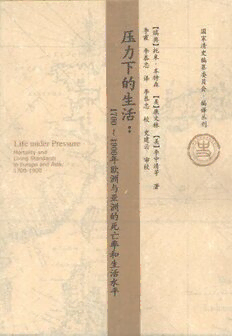 国家清史编纂委员会·编译丛刊
[瑞典]托米·本特森 [美]康文林 [美]李中清等 著
李霞 李恭忠 译 李恭忠 校 史建云 审校
压力下的生活：
1700~1900年欧洲与亚洲的死亡率和生活水平
Life under Pressure
Mortality and
Living Standards
in Europe and Asia,
1700-1900